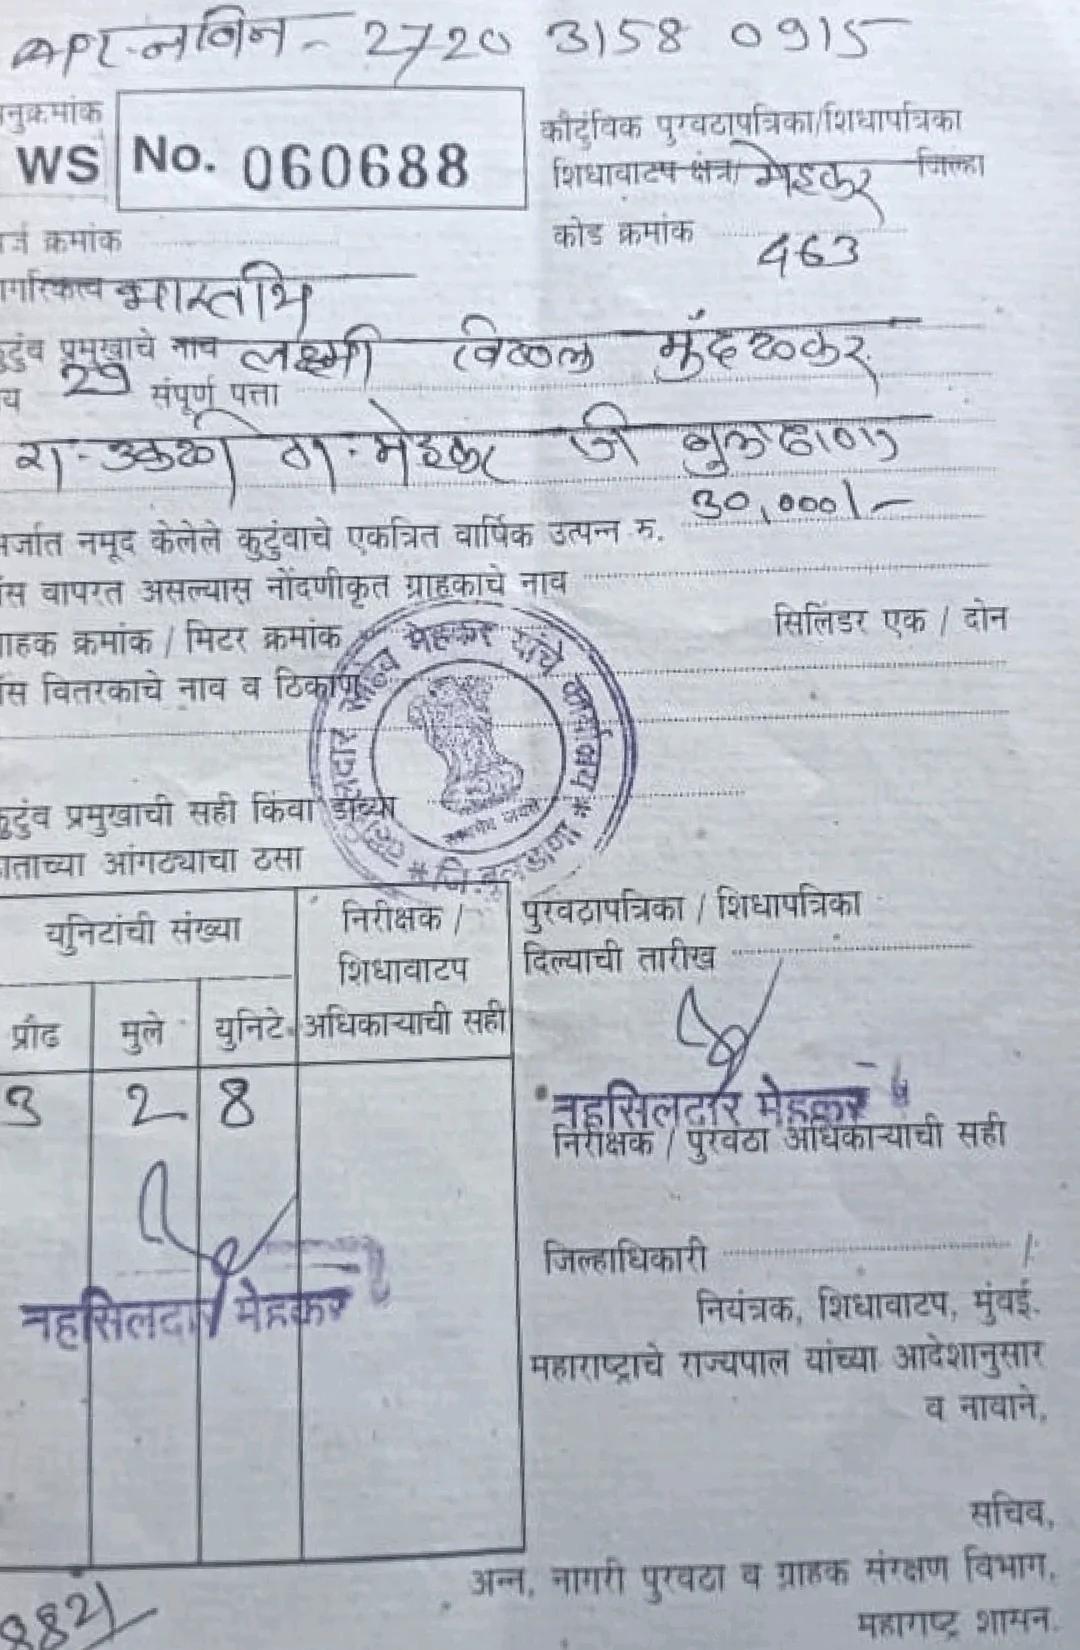 APL-नविन - 2720 3158 0915
नुक्रमांक
WS No. 060688
कौटुंबिक पुरवठापत्रिका/शिधापत्रिका
शिधावाटप क्षेत्र/ मेहकर जिल्हा
कोड क्रमांक 463
र्ज क्रमांक
ागरिकत्व भारतीय
ुटुंब प्रमुखाचे नाव लक्ष्मी विठ्ठल मुंदळकर
य 29 संपूर्ण पत्ता
रा. उकळी ता. मेहकर जी बुलढाणा
र्जात नमूद केलेले कुटुंबाचे एकत्रित वार्षिक उत्पन्न रु. 30,000/-
ॅस वापरत असल्यास नोंदणीकृत ग्राहकाचे नाव
्राहक क्रमांक / मिटर क्रमांक सिलिंडर एक / दोन
ॅस वितरकाचे नाव व ठिकाण
तहसिलदार साहेब मेहकर यांचे कार्यालय * जि.बुलडाणा *
सत्यमेव जयते
कुटुंब प्रमुखाची सही किंवा डाव्या
ाताच्या आंगठ्याचा ठसा
युनिटांची संख्या
निरीक्षक / शिधावाटप अधिकाऱ्याची सही
प्रौढ मुले युनिटे
3 2 8
तहसिलदार मेहकर
पुरवठापत्रिका / शिधापत्रिका
दिल्याची तारीख
तहसिलदार मेहकर
निरीक्षक / पुरवठा अधिकाऱ्याची सही
जिल्हाधिकारी
नियंत्रक, शिधावाटप, मुंबई.
महाराष्ट्राचे राज्यपाल यांच्या आदेशानुसार
व नावाने,
सचिव,
अन्न, नागरी पुरवठा व ग्राहक संरक्षण विभाग,
महाराष्ट्र शासन.